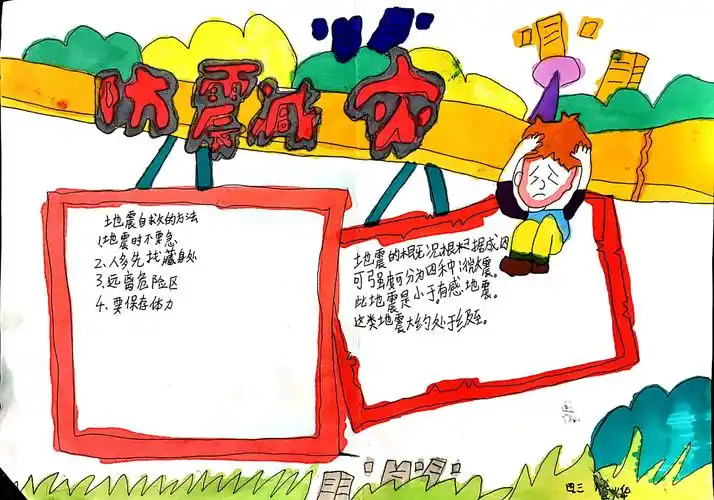 防震减灾
地震自救的方法
1地震时不要急
2、人多先找藏身处
3、远离危险区
4、要保存体力
地震的概况根据成因
可强度可分为四种:微震。
此地震是小于有感地震。
这类地震大约处于级。
四三